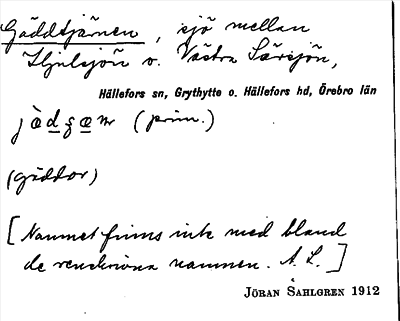 Gäddtjärnen, sjö mellan
Hjulsjön o. Västra Lärsjön,
Hällefors sn, Grythytte o. Hällefors hd, Örebro län
(prim.)
(gäddor)
[Namnet finns inte med bland
de renskrivna namnen. A. L.]
JÖRAN SAHLGREN 1912